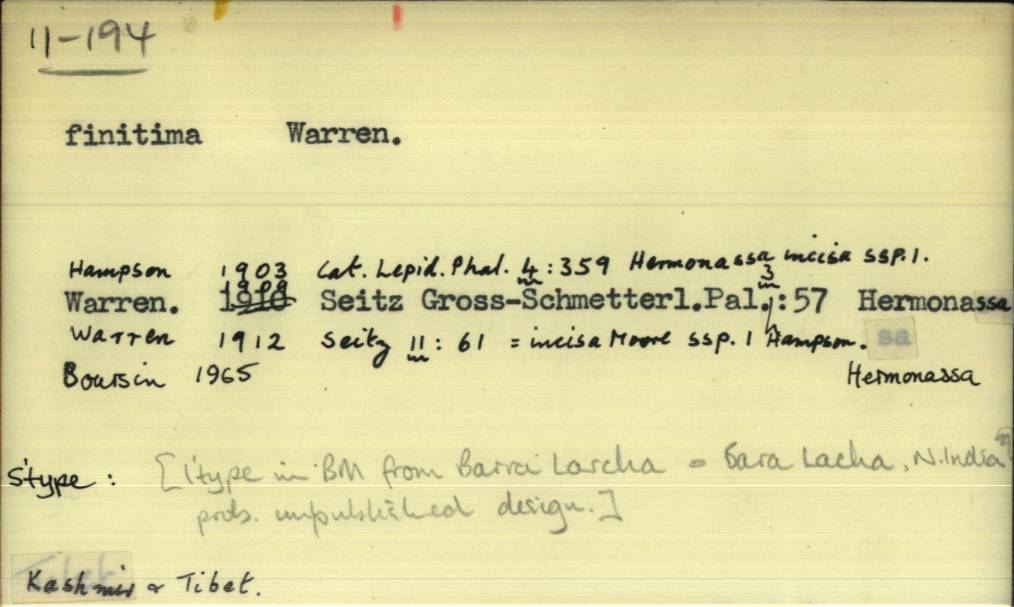 11-194
finitima Warren.
Hampson 1903 Cat. Lepid. Phal. 4:359 Hermonassa incisa ssp. 1.
Warren. 1909 Seitz Gross-Schmetterl.Pal. 3:57 Hermonassa
Warren 1912 Seitz 11: 61 = incisa Moore ssp. 1 Hampson.
sa
Boursin 1965 Hermonassa
S'type: ['type in BM from Barra Larcha = Bara Lacha, N. India
prob. unpublished design.]
Kashmir & Tibet.